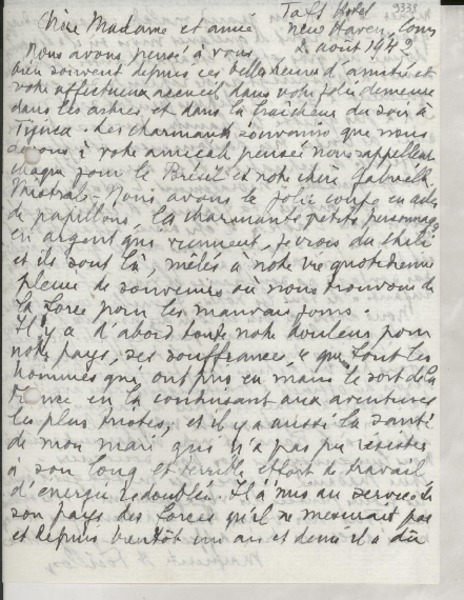 9338
Taft Hotel
Chère Madame et amie New Haven, Conn
2 août 1942
Nous avons pensé à vous
bien souvent depuis ces belles heures d'amitié et
votre affectueux accueil dans votre jolie demeure
dans les arbres et dans la fraîcheur du soir à
Tijuca. Les charmants souvenirs que nous
avons à votre amicale pensée nous rappellent
chaque jour le Brésil et notre chère Gabriela
Mistral. Nous avons la jolie coupe en ailes
de papillons, les charmants petits personnages
en argent qui viennent, je crois du Chili
et ils sont là, mêlés à notre vie quotidienne
pleine de souvenirs où nous trouvons de
la force pour les mauvais jours.
Il y a d'abord toute notre douleur pour
notre pays, ses souffrances, ce que font les
hommes qui ont pris en mains le sort de la
France en la conduisant aux aventures
les plus tristes, et il y a aussi la santé
de mon mari qui n'a pas pu résister
à son long et terrible effort de travail
d'énergie redoublée. Il a mis au service de
son pays des forces qu'il ne mesurait pas
et depuis bientôt un an et demi il a dû